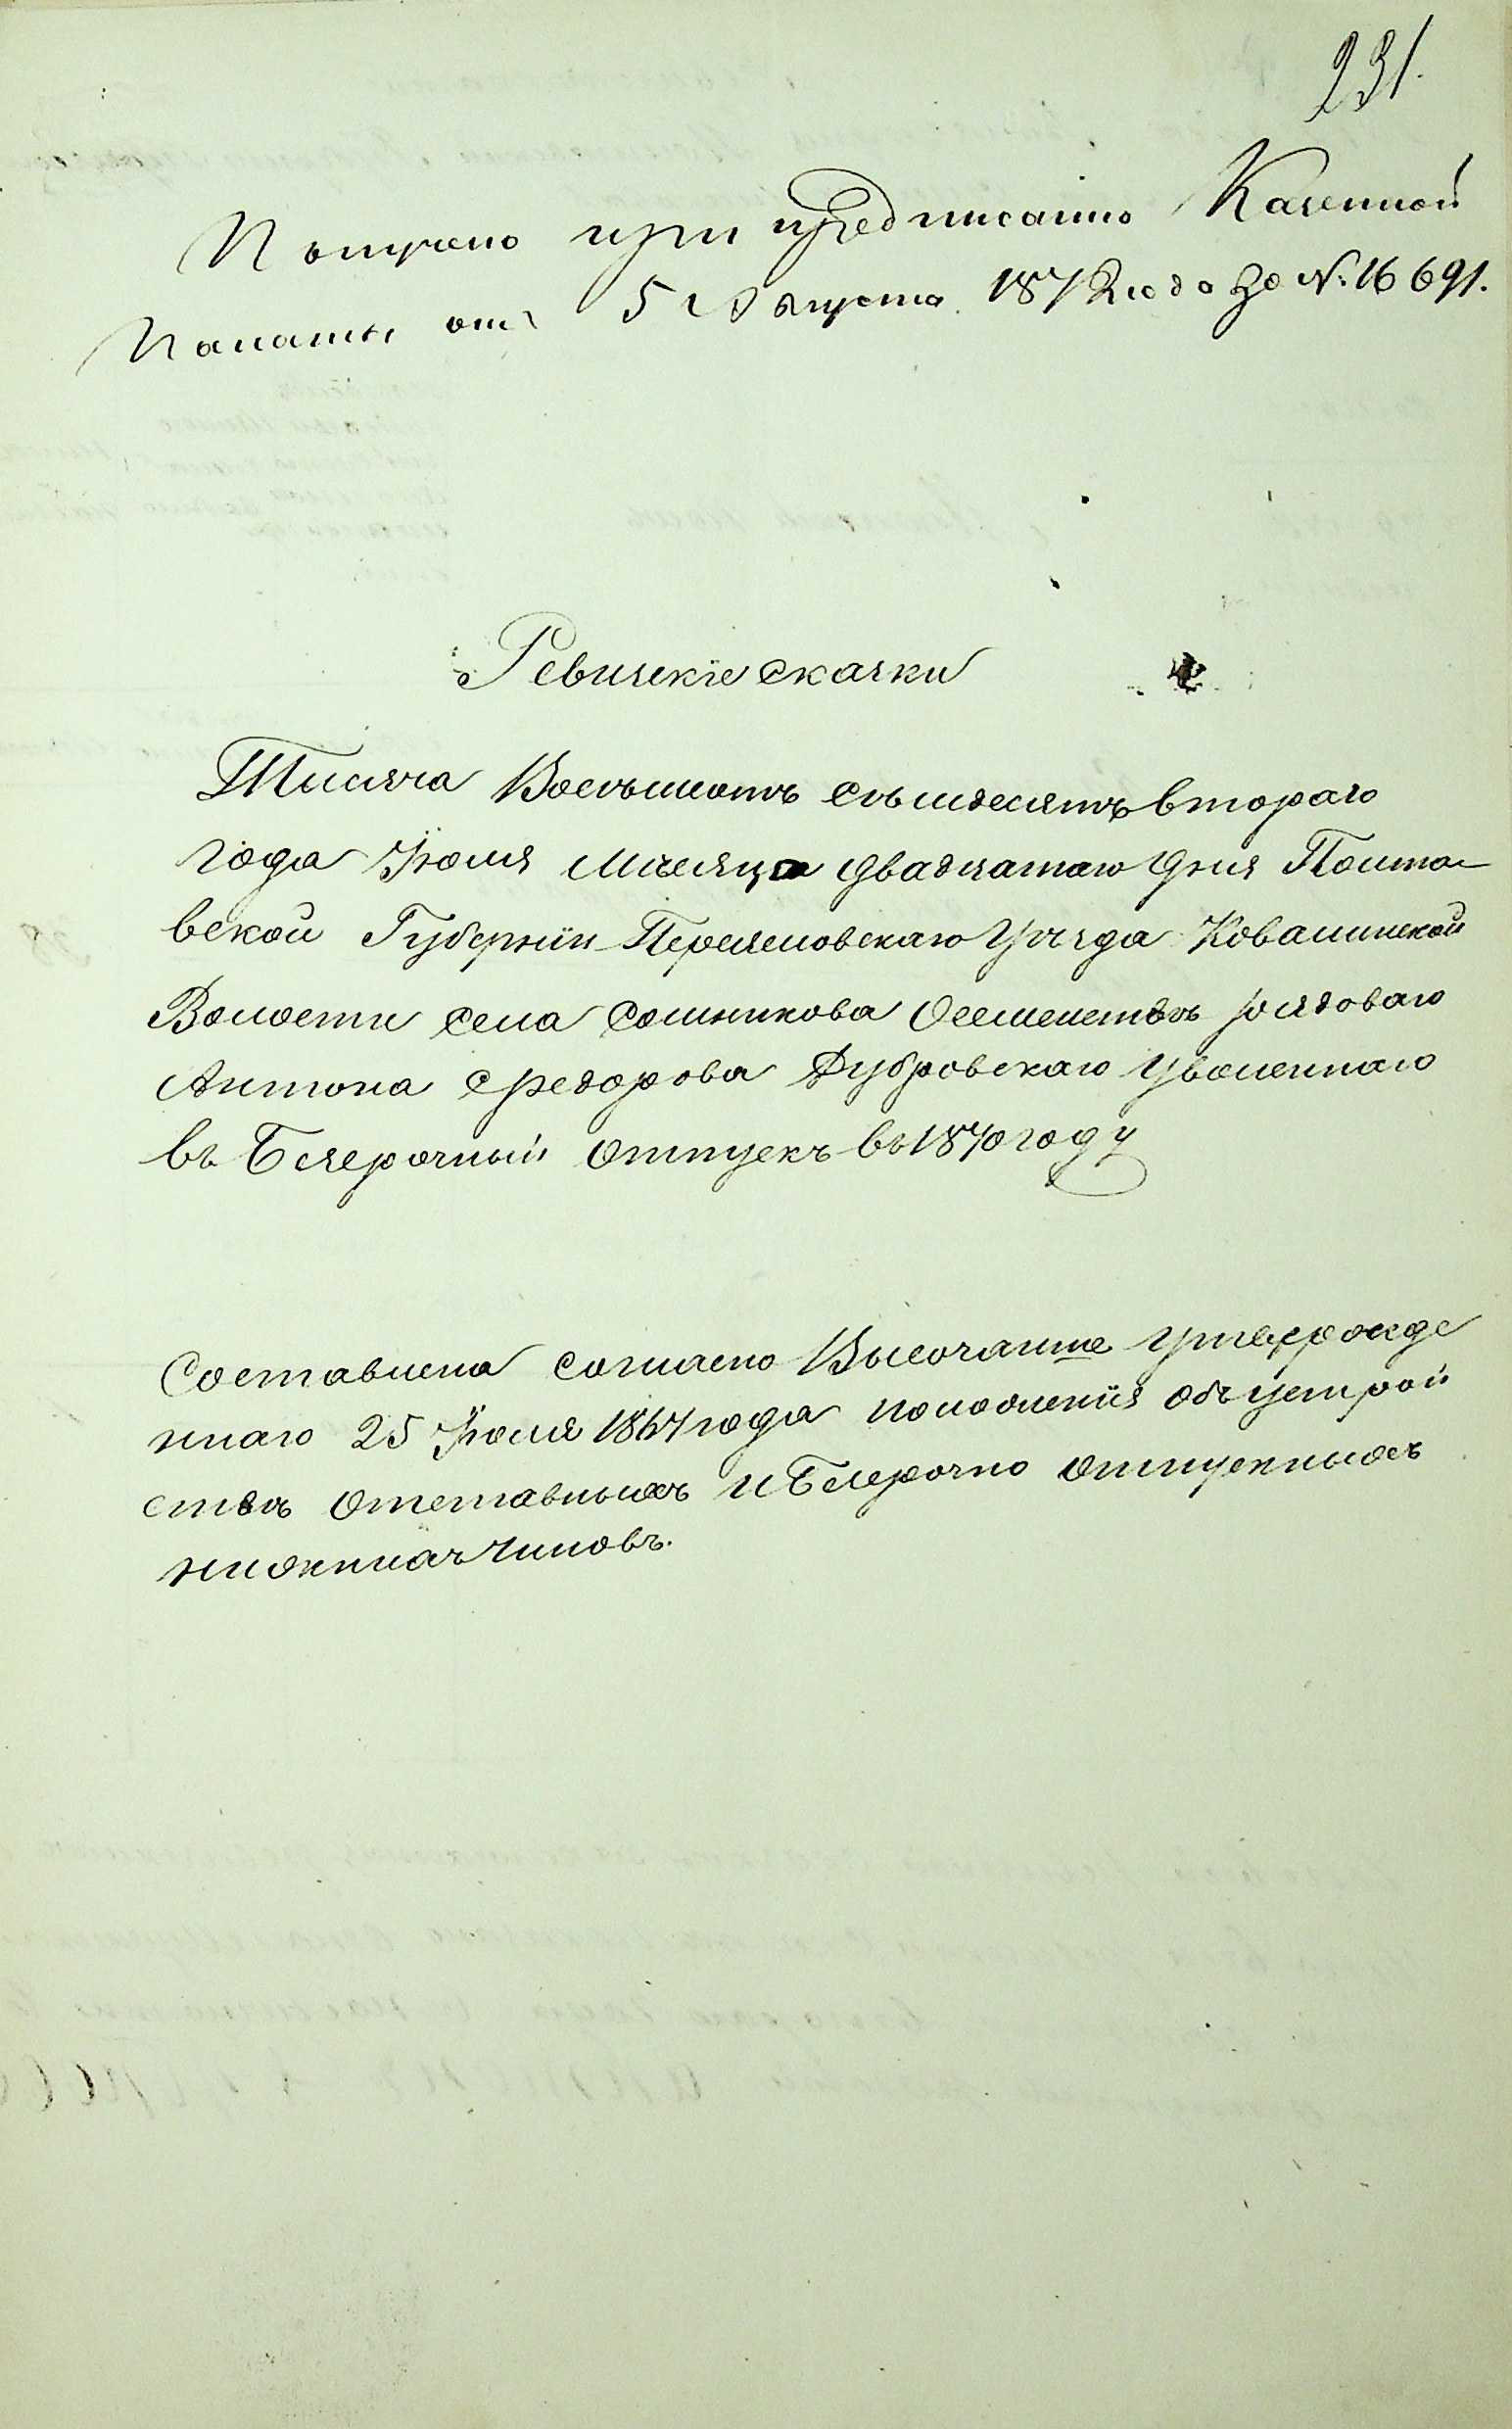 231.
Получено при предписанию Казенной
Палаты отъ 5 Августа 1872 года За №. 16691.
Ревизскіе сказки
Тысяча Восемьсотъ семьдесятъ втораго
года Іюля Мѣсяца двадцатаго дня Полта-
вской Губерніи Переясловскаго Уѣзда Ковалинской
Волости села Сошникова О семействѣ рядоваго
Антона Федорова Дубровскаго Уволеннаго
въ Безсрочный Отпускъ въ 1870 году
Составлена согласно Высочайше Утвержде
ннаго 25 Іюля 1867 года положенія объ устрой
ствѣ Отставныхъ и Безсрочно Отпускныхъ
нижнихъ чиновъ.